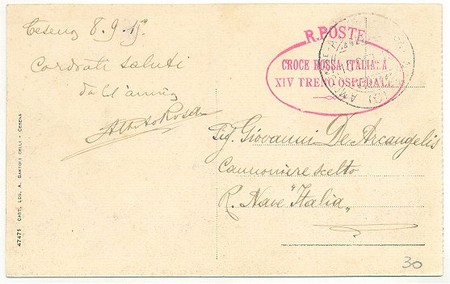 Cesena 8.9.15
Cordiali saluti
da
Alberto
R. POSTE
CROCE ROSSA ITALIANA
XIV TRENO OSPEDALE
Sig. Giovanni De Arcangelis
Cannoniere scelto
R. Nave "Italia"
47471 CART. LOD. A. CESENA
30